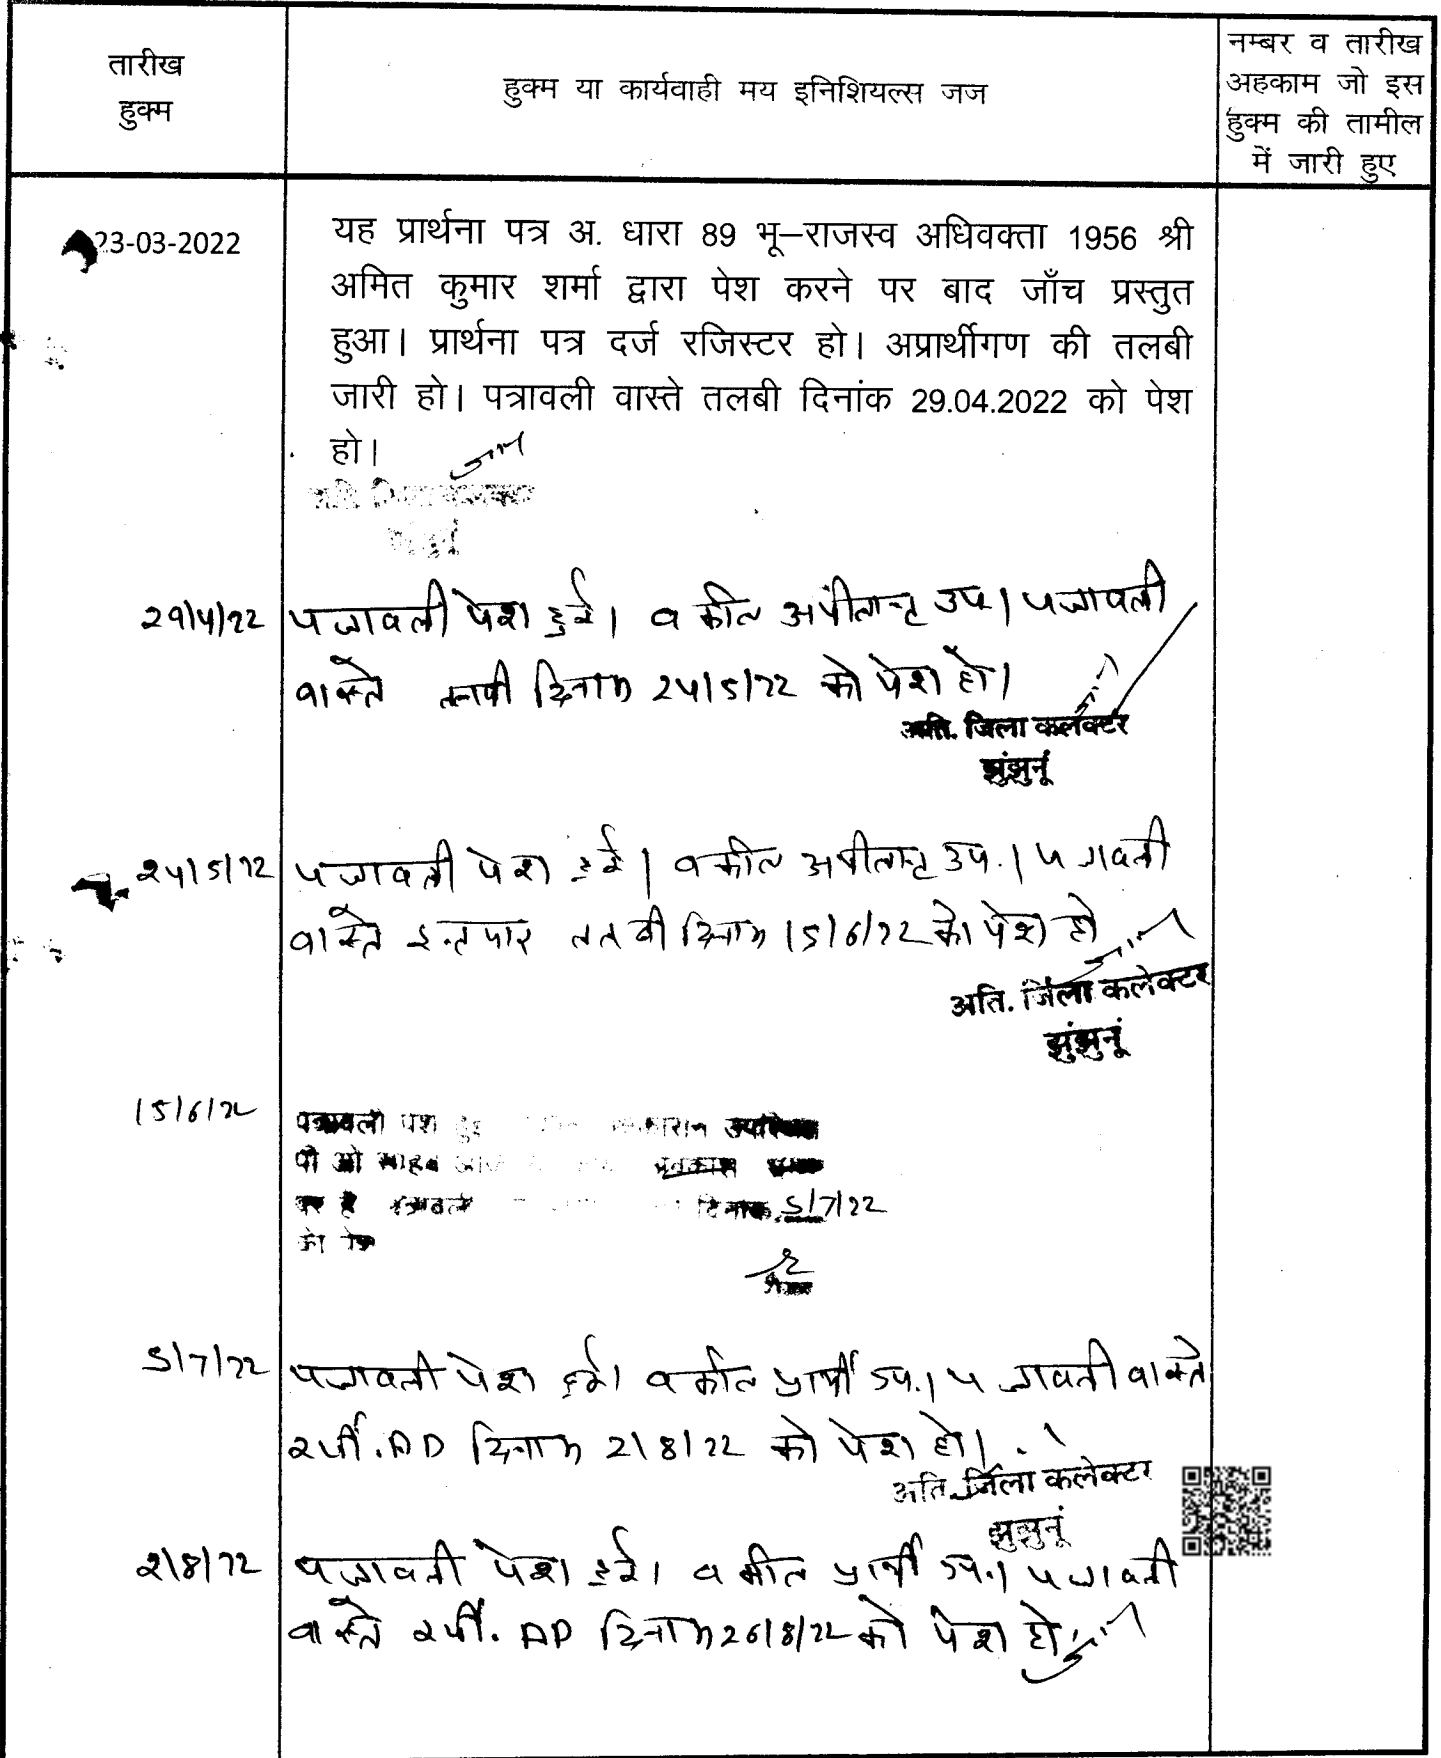 तारीख
हुक्म
हुक्म या कार्यवाही मय इनिशियल्स जज
नम्बर व तारीख
अहकाम जो इस
हुक्म की तामील
में जारी हुए
23-03-2022
यह प्रार्थना पत्र अ. धारा 89 भू–राजस्व अधिवक्ता 1956 श्री
अमित कुमार शर्मा द्वारा पेश करने पर बाद जाँच प्रस्तुत
हुआ। प्रार्थना पत्र दर्ज रजिस्टर हो। अप्रार्थीगण की तलबी
जारी हो। पत्रावली वास्ते तलबी दिनांक 29.04.2022 को पेश
हो।
अति जिला कलेक्टर
29/4/22 पत्रावली पेश हुई। वकील अपीलान्ट उप.। पत्रावली
वास्ते तलबी दिनांक 24/5/22 को पेश हो।
अति. जिला कलेक्टर
झुंझुनूं
24/5/22 पत्रावली पेश हुई। वकील अपीलान्ट उप.। पत्रावली
वास्ते इन्तजार तलबी दिनांक 15/6/22 को पेश हो
अति. जिला कलेक्टर
झुंझुनूं
15/6/22 पत्रावली पेश हुई
पी ओ साहब
पर है पत्रावली दिनांक 5/7/22
को पेश
5/7/22 पत्रावली पेश हुई। वकील प्रार्थी उप.। पत्रावली वास्ते
रजि. AD दिनांक 2/8/22 को पेश हो।
अति. जिला कलेक्टर
झुंझुनूं
2/8/22 पत्रावली पेश हुई। वकील प्रार्थी उप.। पत्रावली
वास्ते रजि. AD दिनांक 26/8/22 को पेश हो